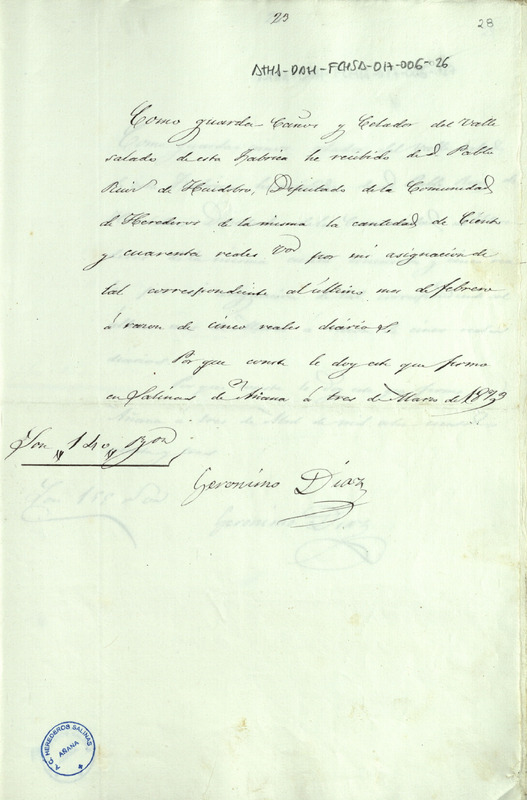 29
28
ATHA-DAH-FCHSA-017-006-26
Como guarda-Caños y Celador del Valle
salado de esta Fabrica he recibido de D. Pablo
Ruiz de Huidobro, Diputado de la Comunidad
de Herederos de la misma la cantidad de Ciento
y cuarenta reales Von por mi asignacion de
tal correspondiente al último mes de febrero
á razon de cinco reales diarios.
Por que conste le doy este que firmo
en Salinas de Añana á tres de Marzo de
Son 140 Von
Geronimo Diaz
A. C. HEREDEROS SALINAS
AÑANA